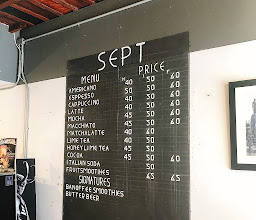 SEPT
MENU PRICE
AMERICANO 40 50 40
ESPRESSO 40 50
CAPPUCCINO 40 50 40
LATTE 40 50 40
MOCHA 45 50 40
MACCHIATO 40 50 40
MATCHA LATTE 40 50 40
LIME TEA 40 50
HONEY LIME TEA 45 50
COCOA 45 50 40
ITALIAN SODA 50
FRUIT SMOOTHIES
SIGNATURES 45 45
BANOFFEE SMOOTHIES
BUTTER BEER